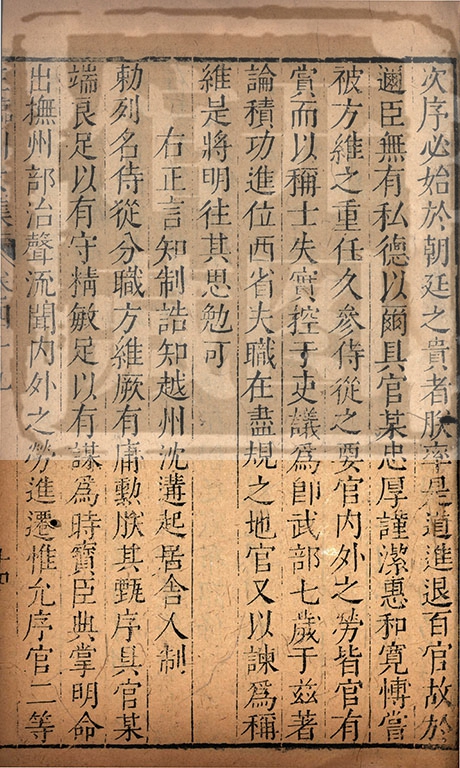 次序必始於朝廷之貴者朕率是道進退百官故於
邇臣無有私德以爾具官某忠厚謹潔惠和寬愽嘗
被方維之重任久參侍從之要官内外之勞皆官有
賞而以稱士失實控于吏議爲郎武部七歲于兹著
論積功進位西省夫職在盡規之地官又以諫爲稱
維是將明往其思勉可
右正言知制誥知越州沈遘起居舍人制
勑列名侍從分職方維厥有庸勳朕其甄序具官某
端良足以有守精敏足以有謀爲時寶臣典掌明命
出撫州部治聲流聞内外之勞進遷惟允序官二等